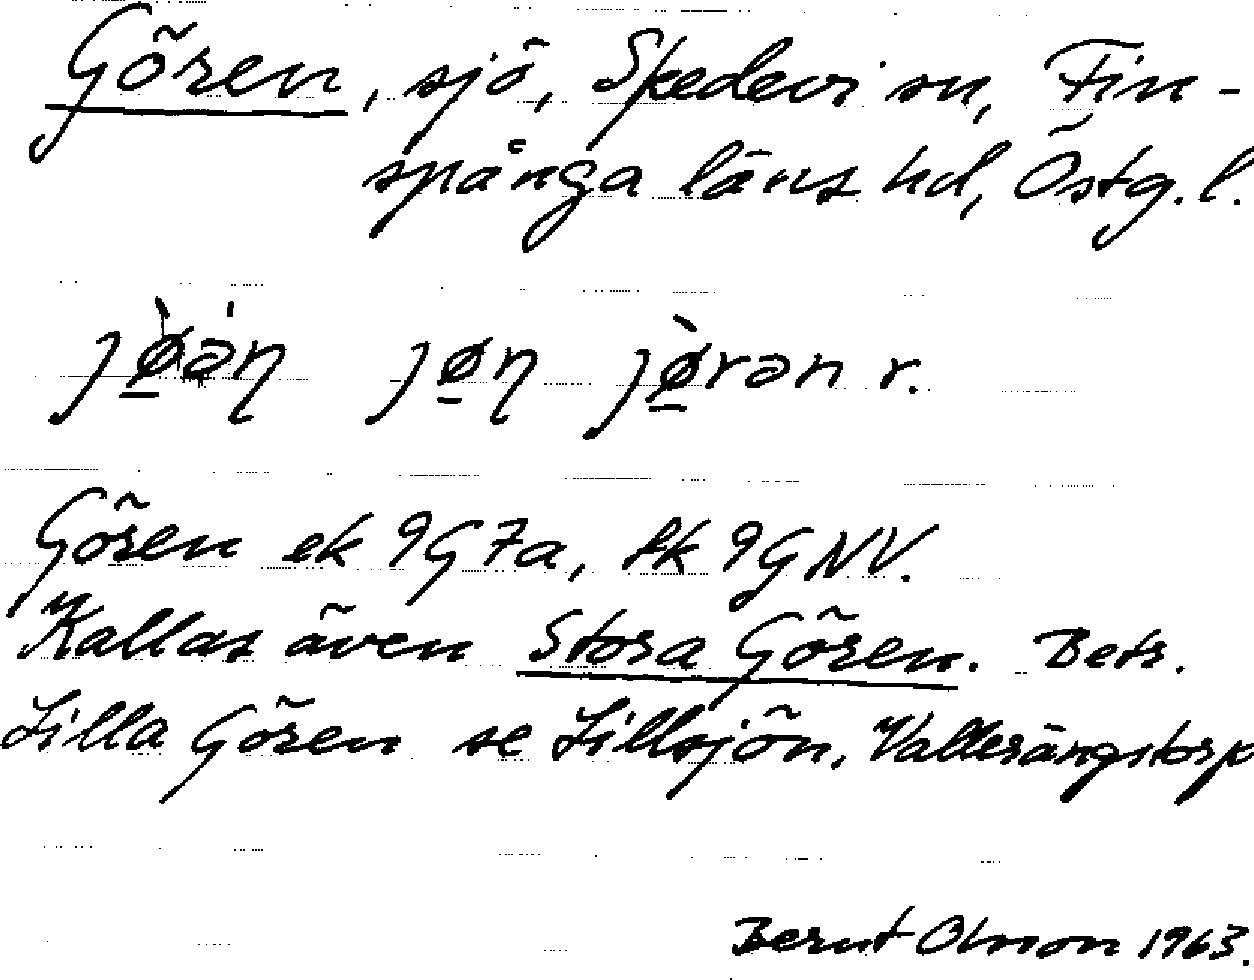 Gören, sjö, Skedevi sn, Fin-
spånga läns hd, Östg. l.
jø̠̀ə̀n jø̠n jø̠̀rən r.
Gören ek 9G7a, tk 9GNV.
Kallas även Stora Gören. Betr.
Lilla Gören se Lillsjön, Vallerängstorp
Bernt Olsson 1963.